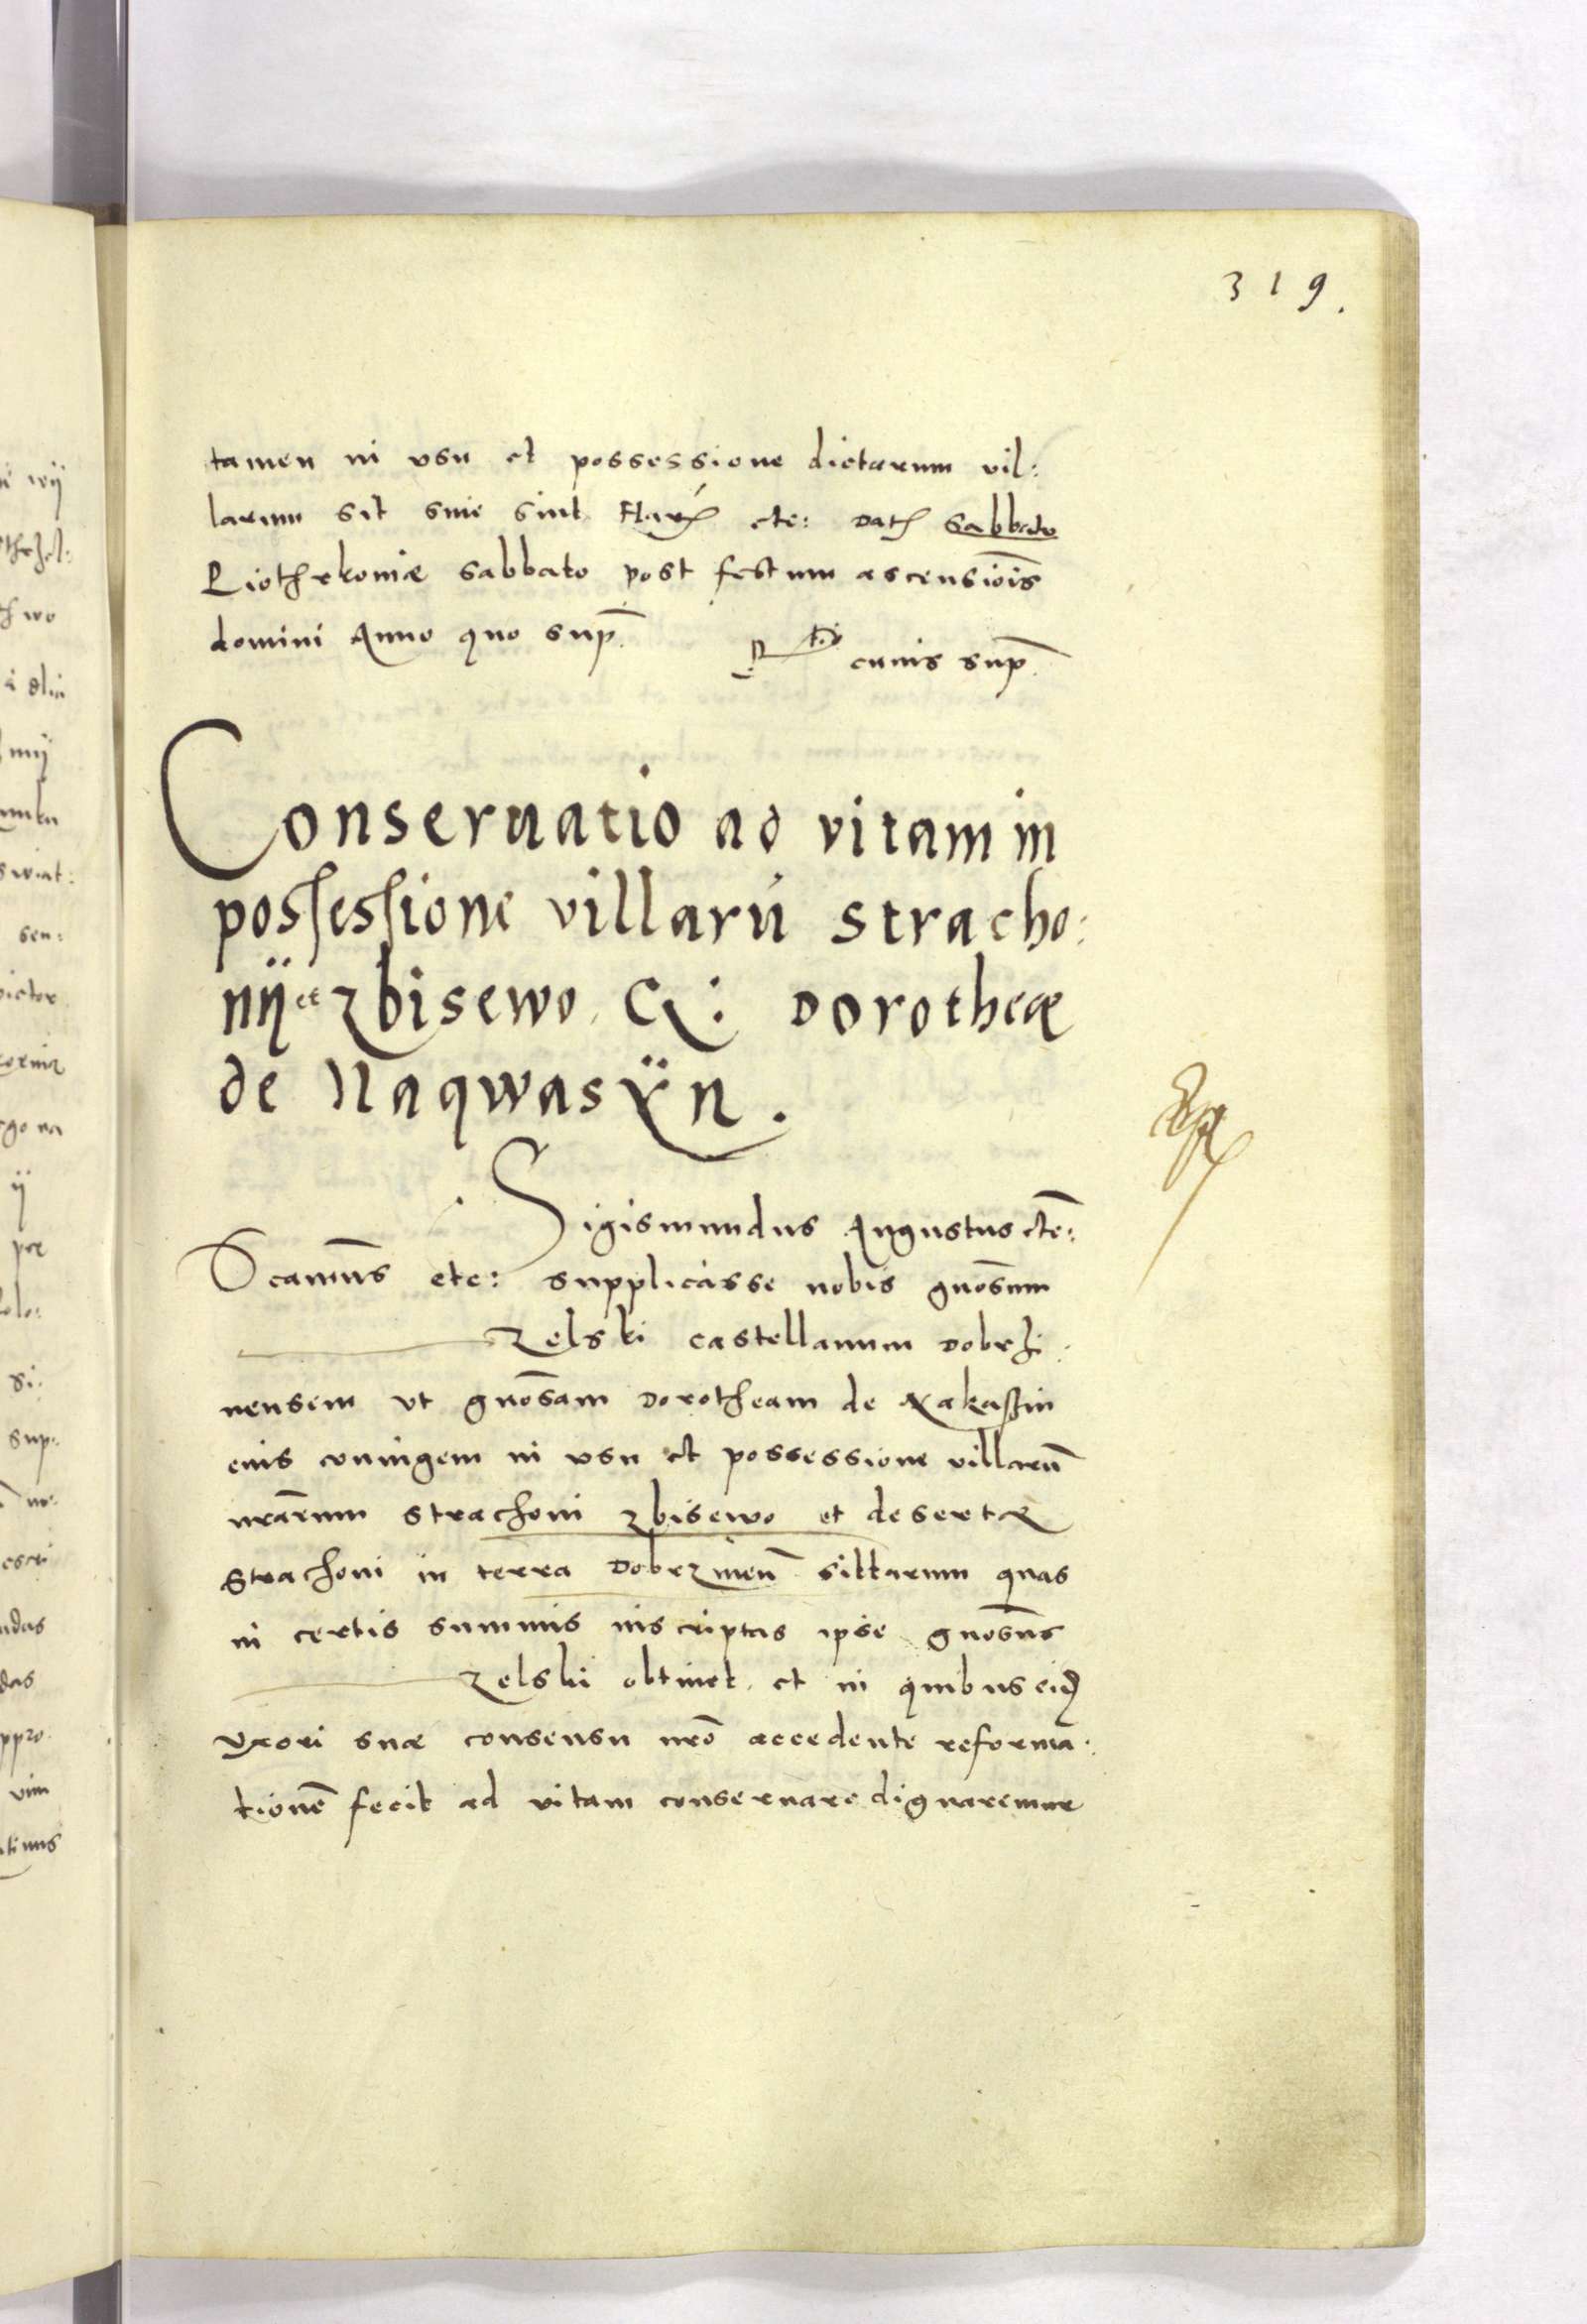 319.
tamen in vsu et possessione dictarum vil:
larum sit siue sint Harũ etc: Dat̃ Sabbato
Piothrkoniæ Sabbato post festum ascensiõis
domini Anno quo sup̃.
Rtio cuius sup̃.
Conseruatio ad vitam in
possessione villarũ Stracho:
nÿ et Zbisewo G: Dorotheæ
de Naqwasÿn.
Sigismundus Augustus etc̃:
Significamus etc: supplicasse nobis gnõsum
Zelski castellanum Dobrzi:
nensem vt gnõsam Dorotheam de
eius coniugem in vsu et possessione villarũ
nrãrum Strachoni Zbisewo et desertæ
Strachoni in terra Dobrzineñ sittarum quas
in certis summis inscriptas ipse gnõsus
Zelski obtinet et in quibus eid̃
vxori suæ consensu nrõ accedente reforma:
tionẽ fecit ad vitam conseruare dignaremur